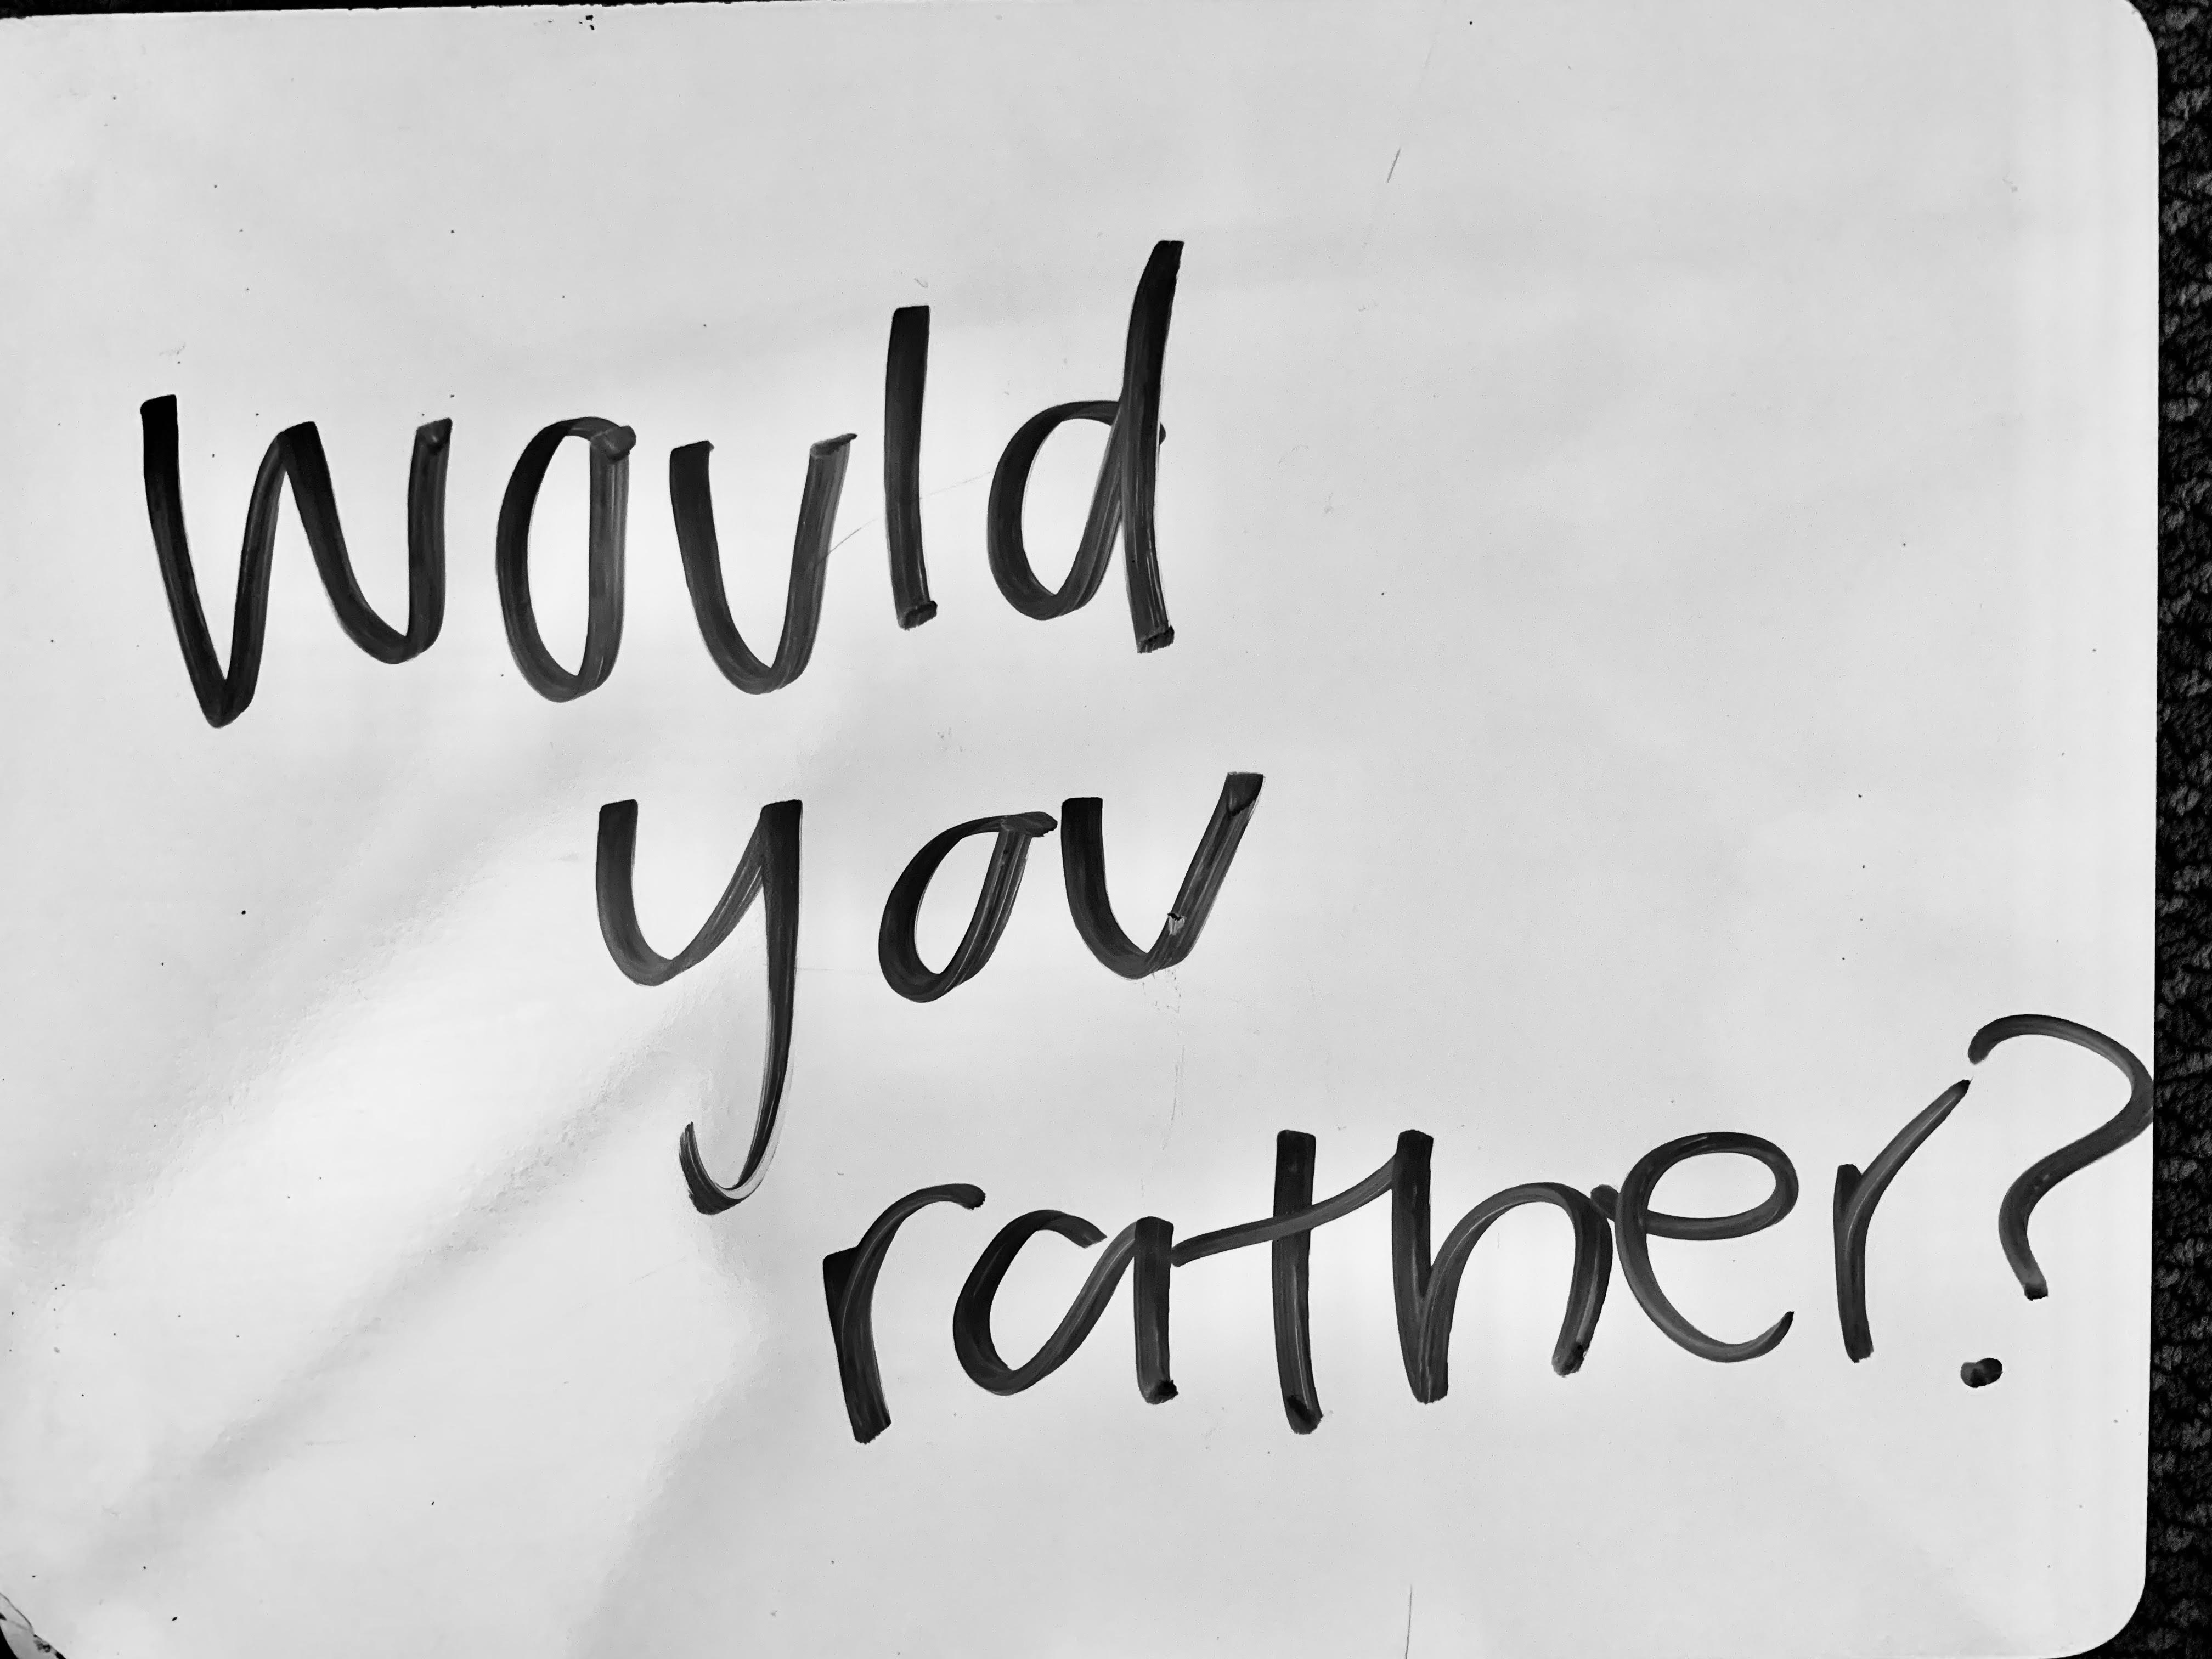 would
you
rather?